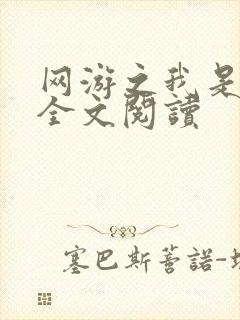 网游之我是
全文閱讀
塞巴斯蒂諾-